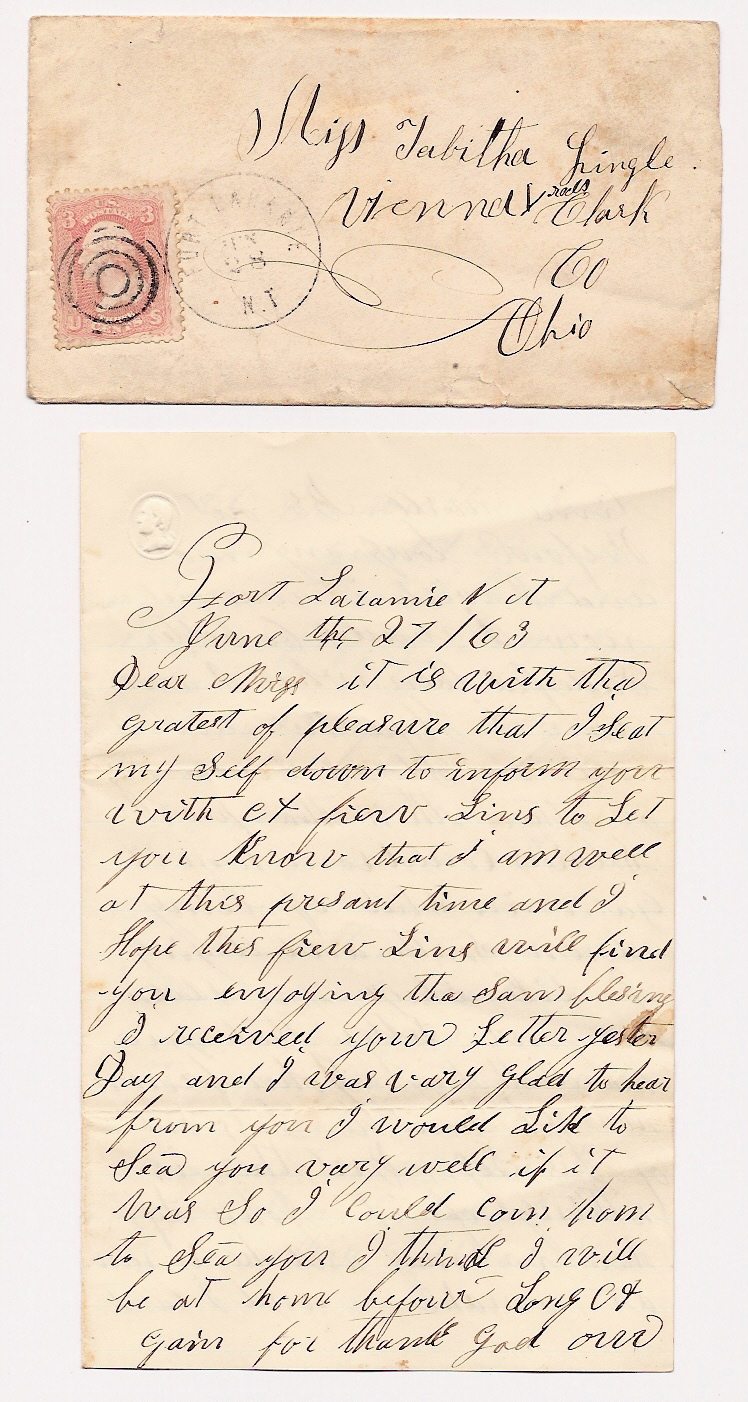 Miss Tabitha Lingle
Vienna X roads Clark
Co
Ohio
3 U.S. POSTAGE 3
FORT LARAMIE
N.T
Fort Laramie N T
June the 27 / 63
Dear Miss it is with tha
gratest of pleasure that I Seat
my Self down to inform you
with A fiew Lins to Let
you Know that I am well
at this presant time and I
Hope thes fiew Lins will find
you enjoying tha Sam blesing
I received your Letter yester
Day and I was vary glad to hear
from you I would Lik to
Sea you vary well if it
was So I could com hom
to Sea you I think I will
be at home before Long A
gain for thank god our